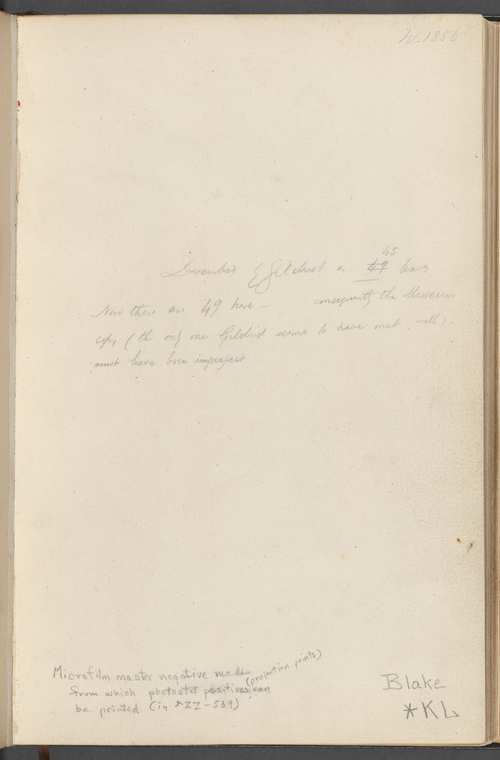 45
Described by Gilchrist as 47 leaves
Now there are 49 here - consequently the Museum
copy (the only one Gilchrist seems to have met with)
must have been imperfect
Microfilm master negative made (projection prints)
from which photostat positives can
be printed (in *ZZ-539)
Blake
*KL